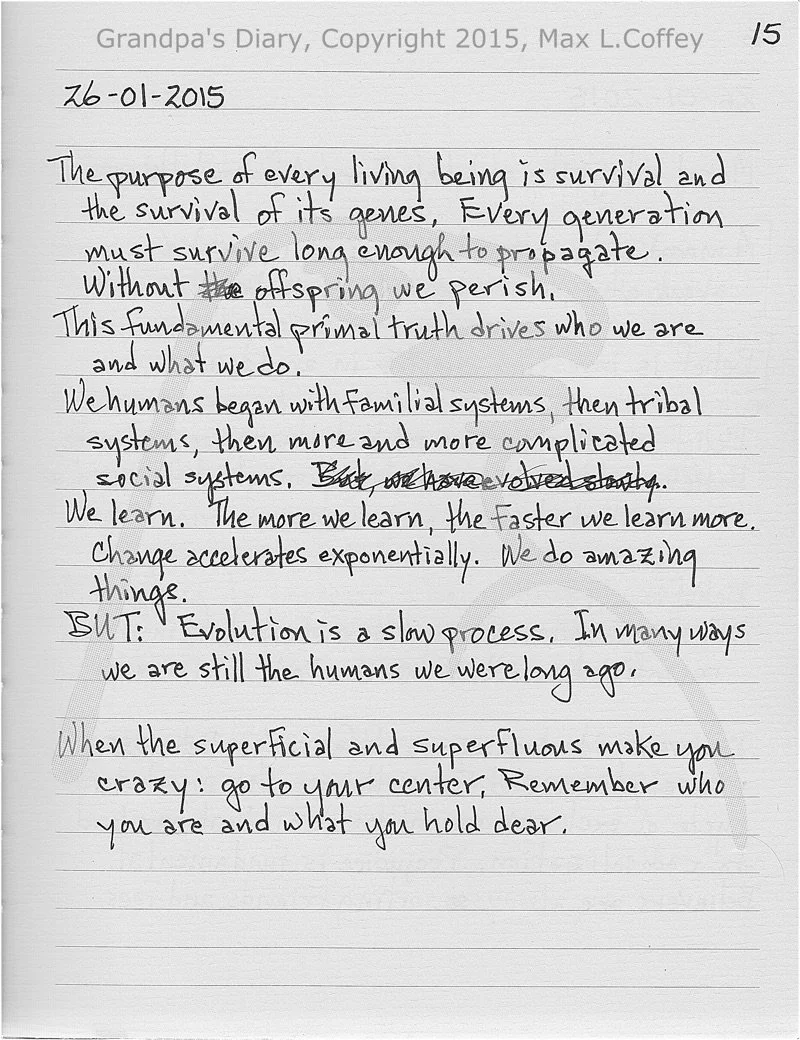 Grandpa's Diary, Copyright 2015, Max L.Coffey
15
26-01-2015
The purpose of every living being is survival and
the survival of its genes. Every generation
must survive long enough to propagate.
Without the offspring we perish.
This fundamental primal truth drives who we are
and what we do.
We humans began with familial systems, then tribal
systems, then more and more complicated
social systems. But, we have evolved slowly.
We learn. The more we learn, the faster we learn more.
Change accelerates exponentially. We do amazing
things.
BUT: Evolution is a slow process. In many ways
we are still the humans we were long ago.
When the superficial and superfluous make you
crazy: go to your center. Remember who
you are and what you hold dear.